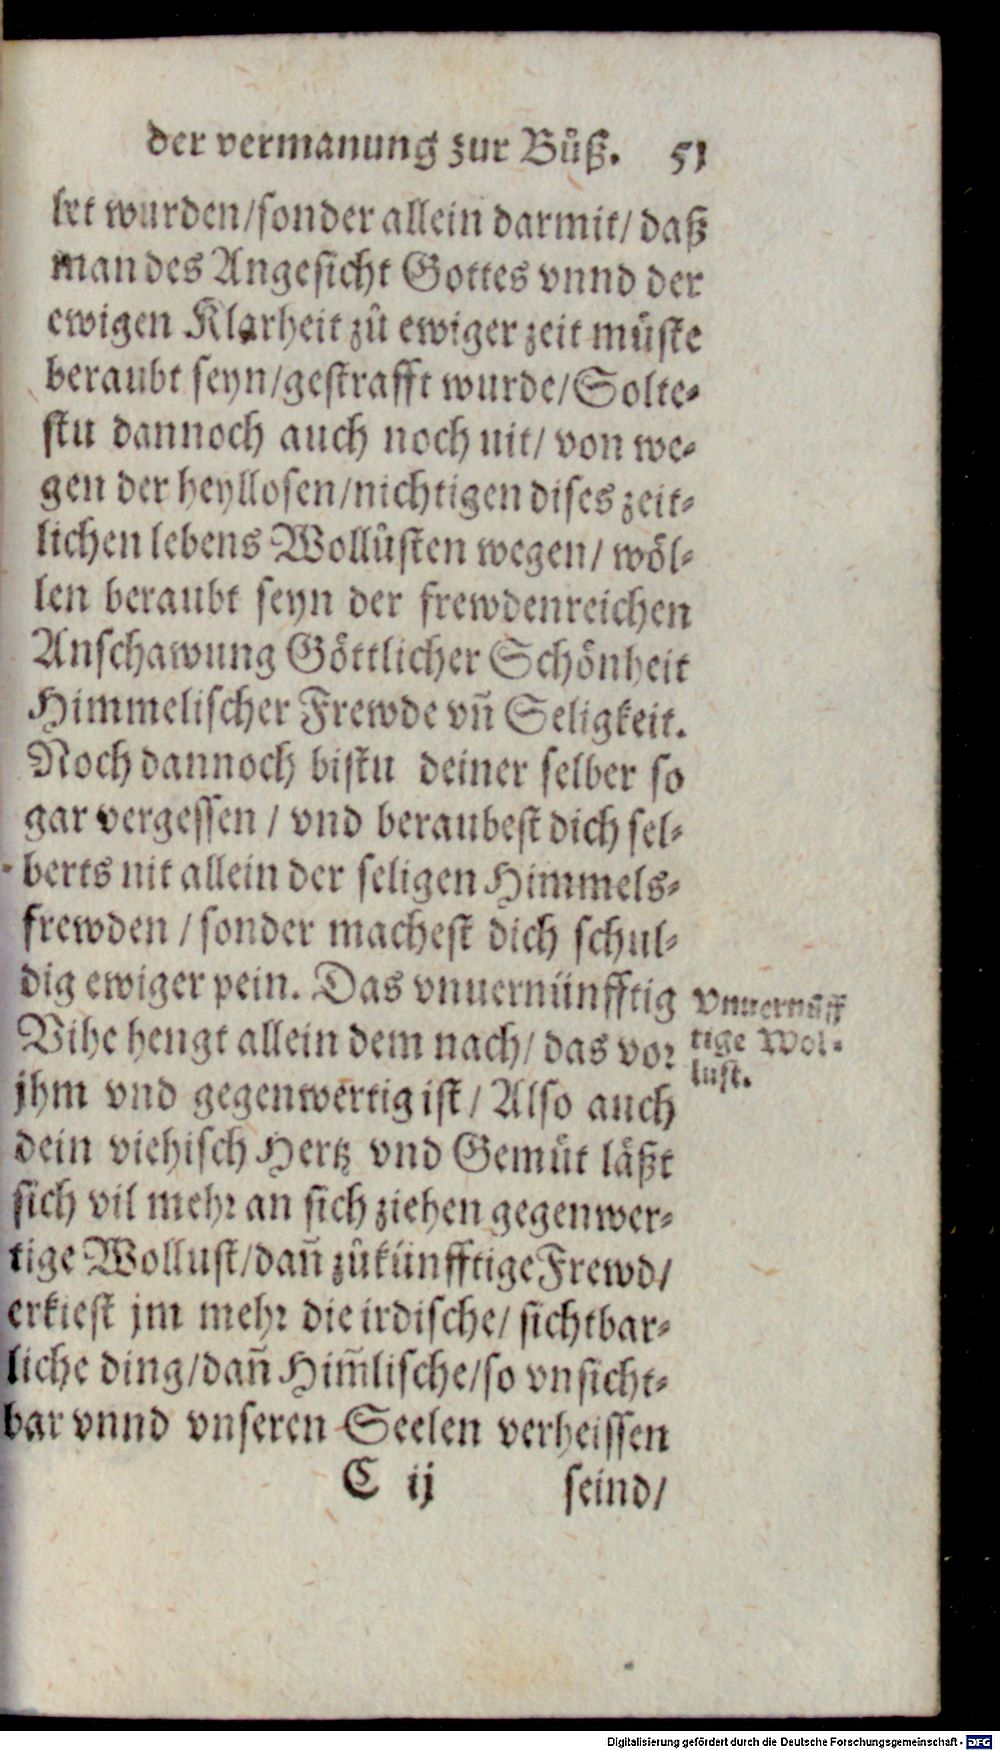 der vermanung zur Bůß. 51
let wurden/sonder allein darmit/ daß
man des Angesicht Gottes vnnd der
ewigen Klarheit zů ewiger zeit můste
beraubt seyn/gestrafft wurde/Solte-
stu dannoch auch noch nit/ von we-
gen der heyllosen/nichtigen dises zeit-
lichen lebens Wollůsten wegen/ wöl-
len beraubt seyn der frewdenreichen
Anschawung Göttlicher Schönheit
Himmelischer Frewde vñ Seligkeit.
Noch dannoch bistu deiner selber so
gar vergessen / vnd beraubest dich sel-
berts nit allein der seligen Himmels-
frewden / sonder machest dich schul-
dig ewiger pein. Das vnuernünfftig
Vihe hengt allein dem nach/ das vor
jhm vnd gegenwertig ist/ Also auch
dein viehisch Hertz vnd Gemůt läßt
sich vil mehr an sich ziehen gegenwer-
tige Wollust/dañ zůkünfftige Frewd/
erkiest jm mehr die irdische/ sichtbar-
liche ding/dañ Him̃lische/so vnsicht-
bar vnnd vnseren Seelen verheissen
C ij seind/
Vnuernůff
tige Wol-
lust.
Digitalisierung gefördert durch die Deutsche Forschungsgemeinschaft - DFG